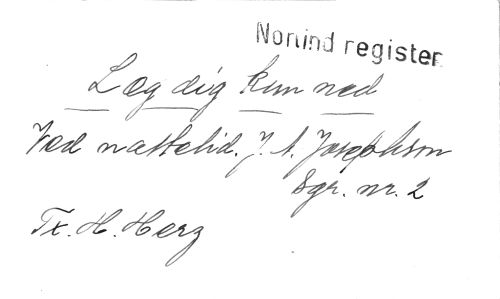 Norlind register
Læg dig kun ned
Ved nattetid. J. A. Josephson
Sgr. nr. 2
Tx. H. Herz